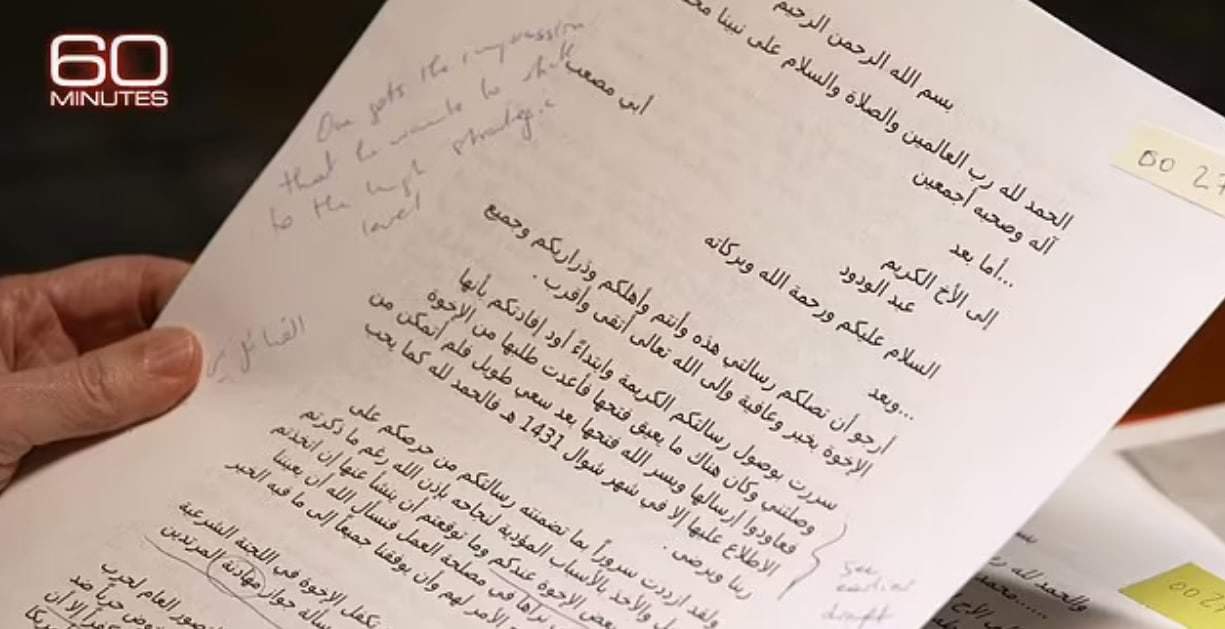 60
MINUTES
One gets the impression
that he wants to
to the high strategic
level
القبائل
بسم الله الرحمن الرحيم
الحمد لله رب العالمين والصلاة والسلام على نبينا
آله وصحبه أجمعين
أبي مصعب
...أما بعد
إلى الأخ الكريم
عبد الودود
السلام عليكم ورحمة الله وبركاته
...وبعد
أرجو أن تصلكم رسالتي هذه وأنتم وأهلكم وذراريكم وجميع
الإخوة بخير وعافية وإلى الله تعالى أتقى وأقرب .
سررت بوصول رسالتكم الكريمة وابتداءً أود إفادتكم بأنها
وصلتني وكان هناك ما يعيق فتحها فأعدت طلبها من الإخوة
فعاودوا إرسالها ويسر الله فتحها بعد سعي طويل فلم أتمكن من
الاطلاع عليها إلا في شهر شوال 1431 هـ فالحمد لله كما يحب
ربنا ويرضى .
ولقد ازددت سروراً بما تضمنته رسالتكم من حرصكم على
والأخذ بالأسباب المؤدية لنجاحه بإذن الله رغم ما ذكرتم
بعض الإخوة عندكم وما توقعتم أن ينشأ عنها إن اتخذتم
نراها في مصلحة العمل فنسأل الله أن يعيننا
الأمر لهم وأن يوفقنا جميعاً إلى ما فيه الخير
يكفل الإخوة في اللجنة الشرعية
مسألة جواز مهادنة المرتدين
التصور العام لحرب
حرباً ضد
إلا أن
see
earlier
draft
00 27
والحمد لله
00 2